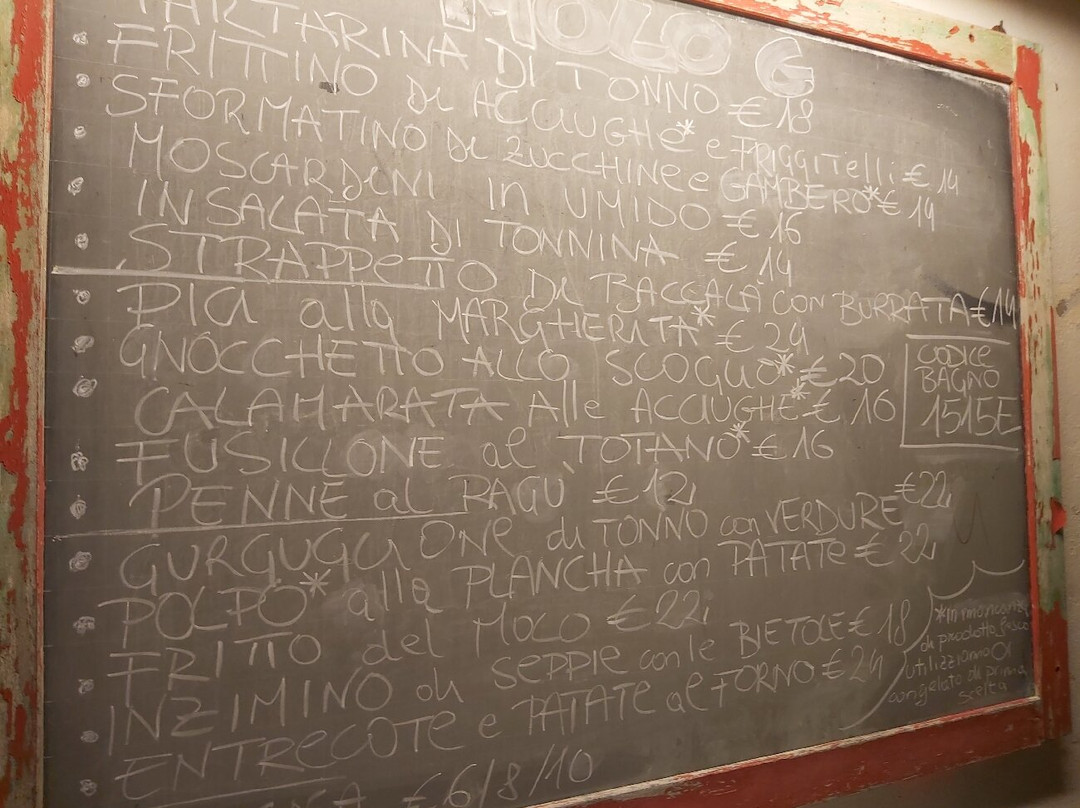 MOLO G
TARTARINA DI TONNO € 18
FRITTINO di ACCIUGHE* e FRIGGITELLI € 14
SFORMATINO di ZUCCHINE e GAMBERO* € 14
MOSCARDINI in UMIDO € 16
INSALATA DI TONNINA € 14
STRAPPETTO DI BACCALÀ con BURRATA € 14
PICI alla MARGHERITA* € 24
GNOCCHETTO ALLO SCOGLIO* € 20
CALAMARATA Alle ACCIUGHE* € 16
FUSILLONE al TOTANO* € 16
PENNE al RAGÙ € 12
CODICE
BAGNO
1515E
GURGUGLIONE di TONNO con VERDURE € 22
POLPO* alla PLANCHA con PATATE € 22
FRITTO del MOLO € 22
INZIMINO di SEPPIE con le BIETOLE € 18
ENTRECOTE e PATATE al FORNO € 24
€ 6/8/10
*In mancanza
di prodotto fresco
utilizziamo
congelato di prima
scelta